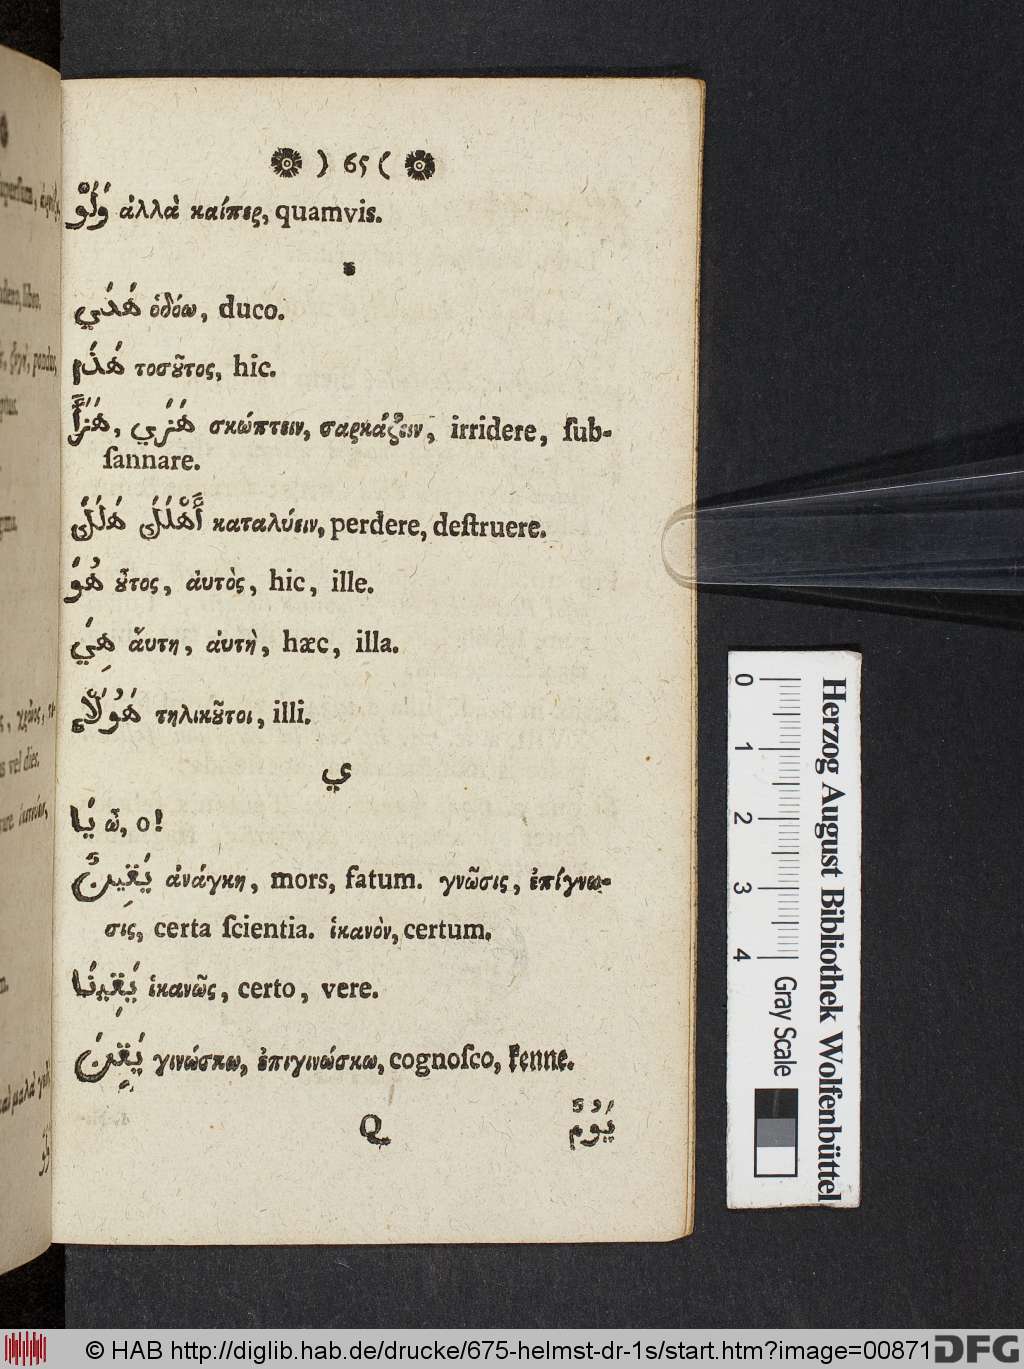 ) 65 (
وَلَوْ ἀλλὰ καίπερ, quamvis.
ه
هَدَي ὁδόω, duco.
هَذَم τοσȣ͂τος, hic.
هَزَأَ, هَزَي σκώπτειν, σαρκάζειν, irridere, ſub-
ſannare.
هَلَكَ أَهْلَكَ καταλύειν, perdere, deſtruere.
هُوَ ȣ̃τος, ἀυτὸς, hic, ille.
هِيَ ἅυτη, ἀυτὴ, hæc, illa.
هَوُلَاءِ τηλικȣ͂τοι, illi.
ي
يَا ὦ, o!
يَقِينٌ ἀνάγκη, mors, fatum. γνῶσις, ἐπίγνω-
σις, certa ſcientia. ἱκανὸν, certum.
يَقِينًا ἱκανῶς, certo, vere.
يَقِنَ γινώσκω, ἐπιγινώσκω, cognoſco, kenne.
Q يَوْمٌ
Herzog August Bibliothek Wolfenbüttel
0 1 2 3 4 Gray Scale
© HAB http://diglib.hab.de/drucke/675-helmst-dr-1s/start.htm?image=00871 DFG